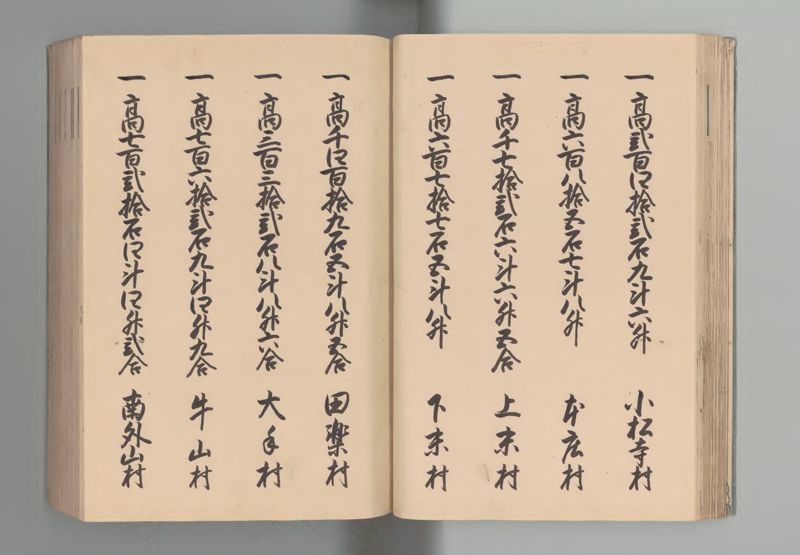 一 高弐百四拾弐石九斗六升 小松寺村
一 高六百八拾五石七斗八升 本庄村
一 高千七拾弐石六斗六升五合 上末村
一 高六百七拾七石五斗八升 下末村
一 高千四百拾九石五斗八升五合 田楽村
一 高三百三拾弐石八斗八升六合 大手村
一 高七百六拾弐石九斗四升九合 牛山村
一 高七百弐拾石四斗四升弐合 南外山村